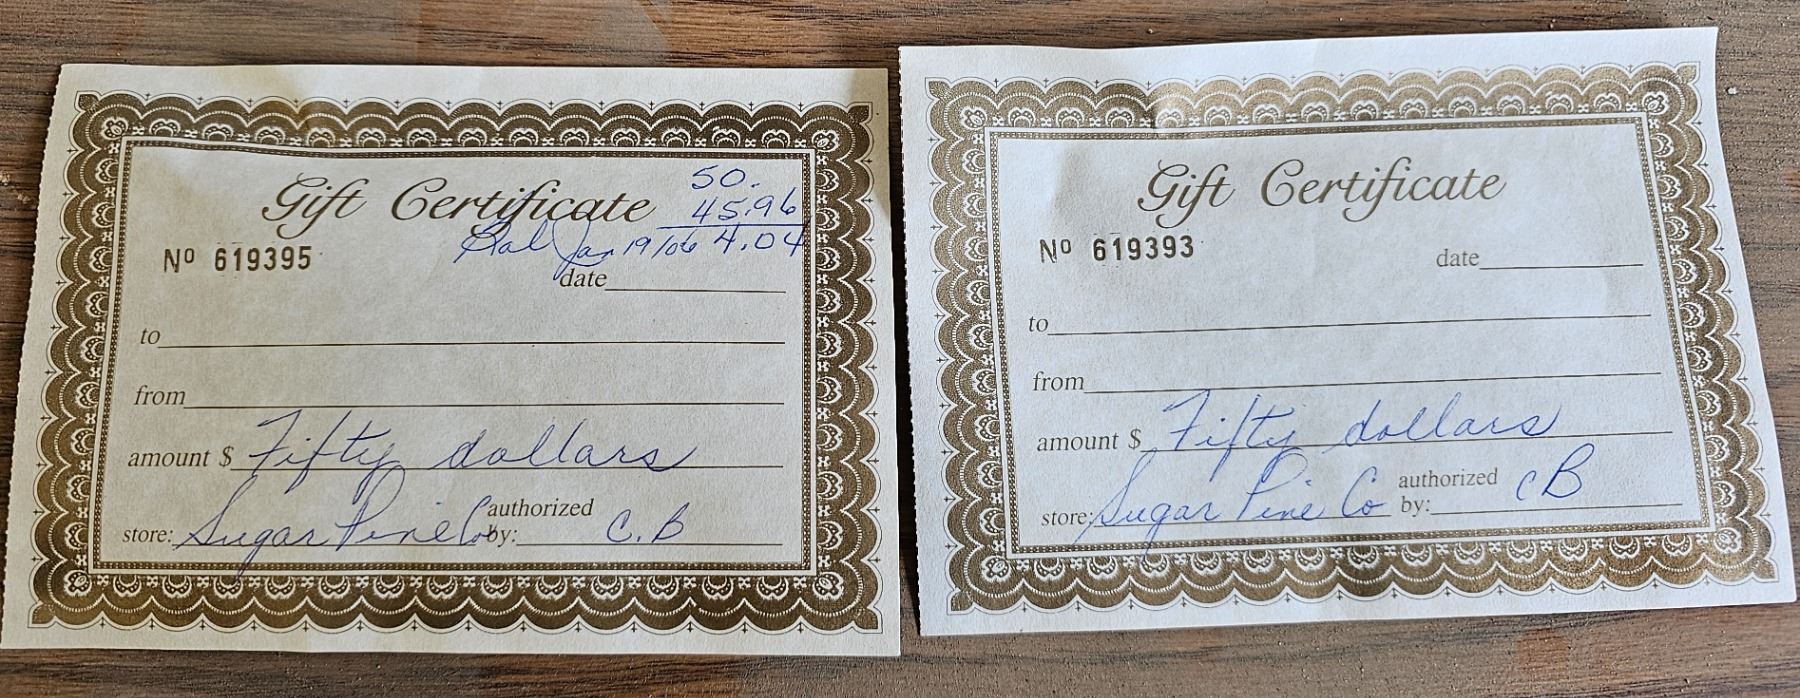 Gift Certificate
50.
45.96
Bal Jan 19/06 4.04
Nº 619395
date
to
from
amount $ Fifty dollars
store: Sugar Pine Co authorized by: C.B
Gift Certificate
Nº 619393
date
to
from
amount $ Fifty dollars
store: Sugar Pine Co authorized by: CB